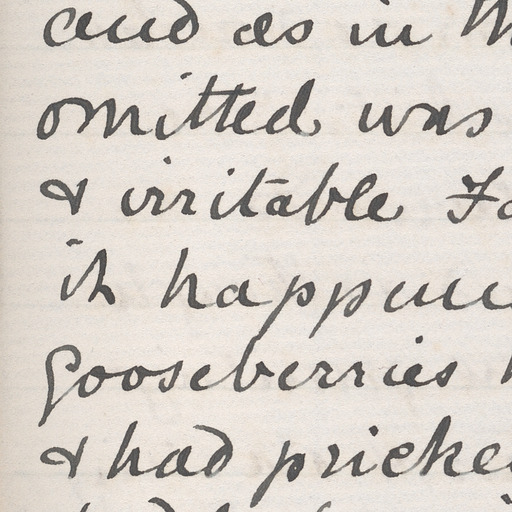 and as in
omitted was
& irritable
it happene
Gooseberries
& had pricke